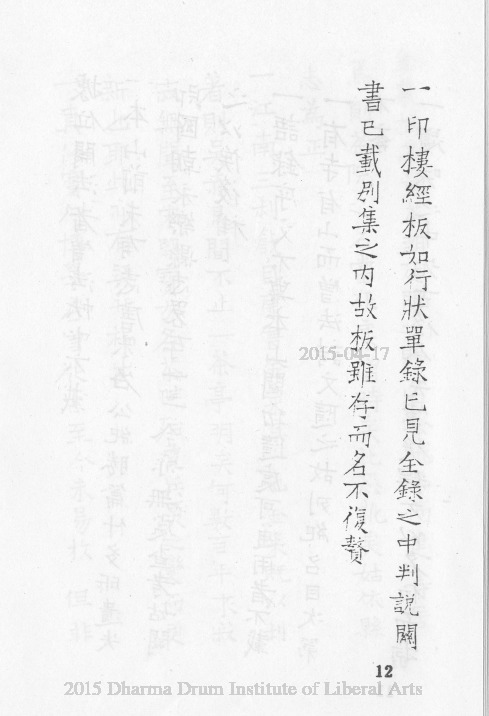 一印樓經板如行狀單錄已見全錄之中判說關
書已載別集之內故板雖存而名不復贅
2015-04-17
12
2015 Dharma Drum Institute of Liberal Arts